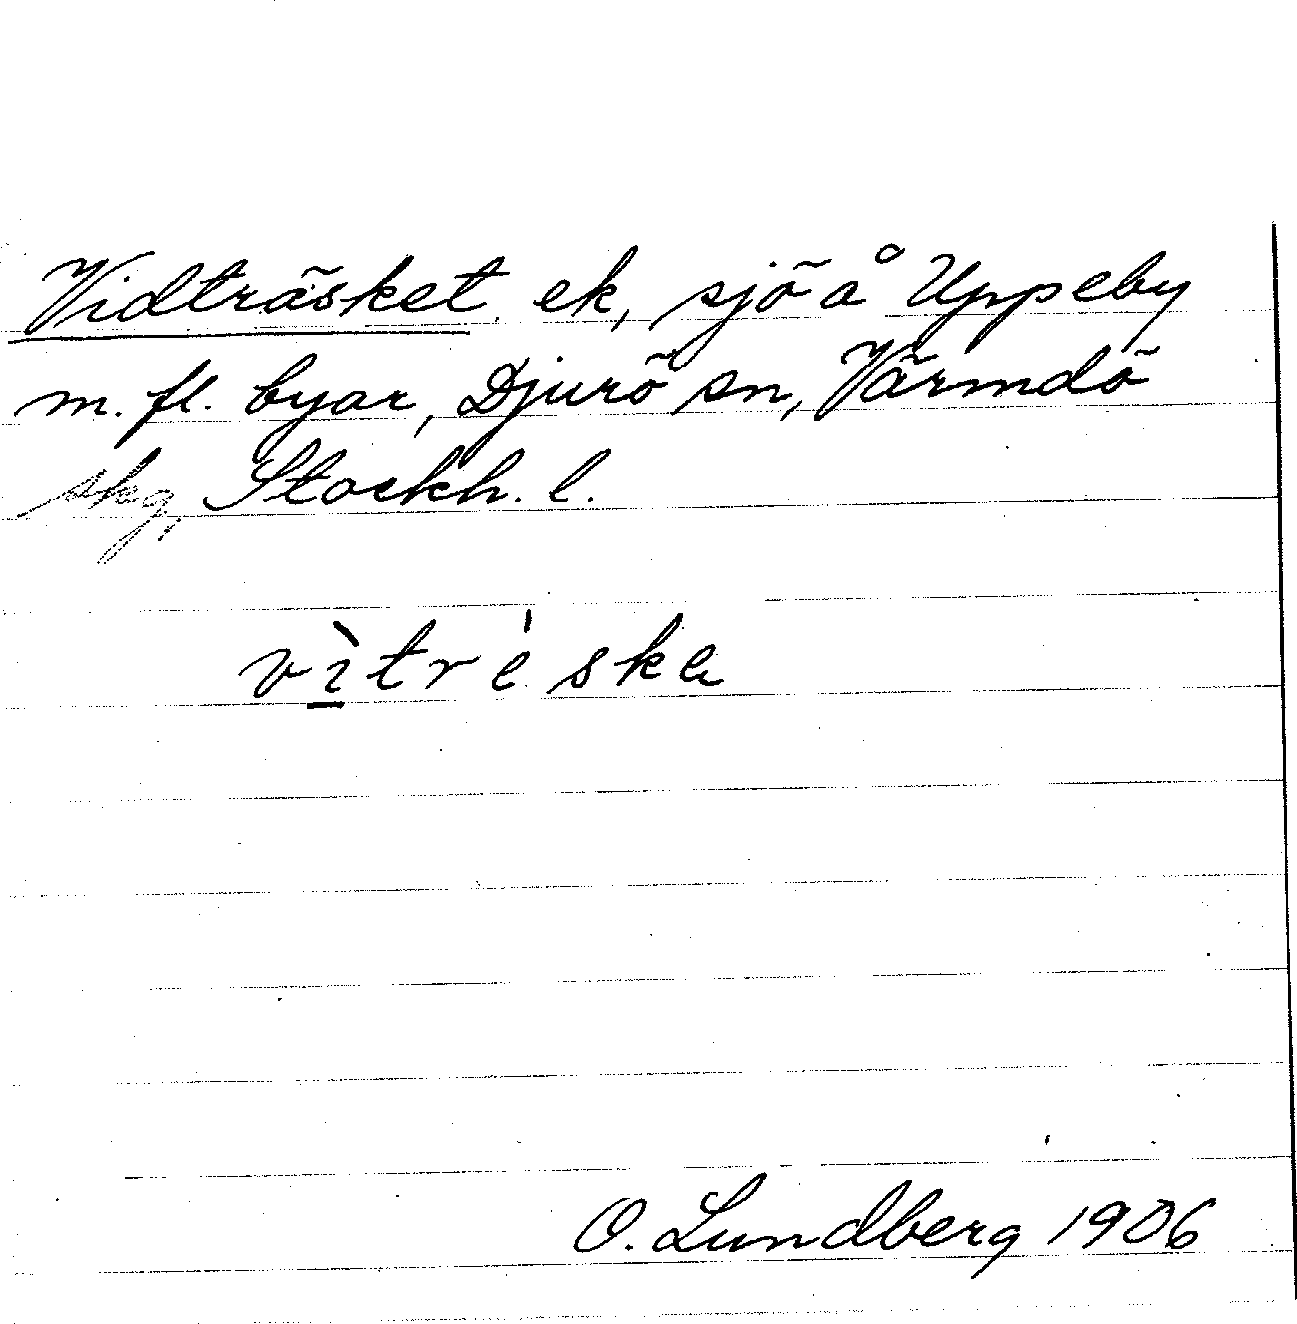 Vidträsket ek, sjö å Uppeby
m. fl. byar, Djurö sn, Värmdö
skg, Stockh. l.
vìtrèske
O. Lundberg 1906